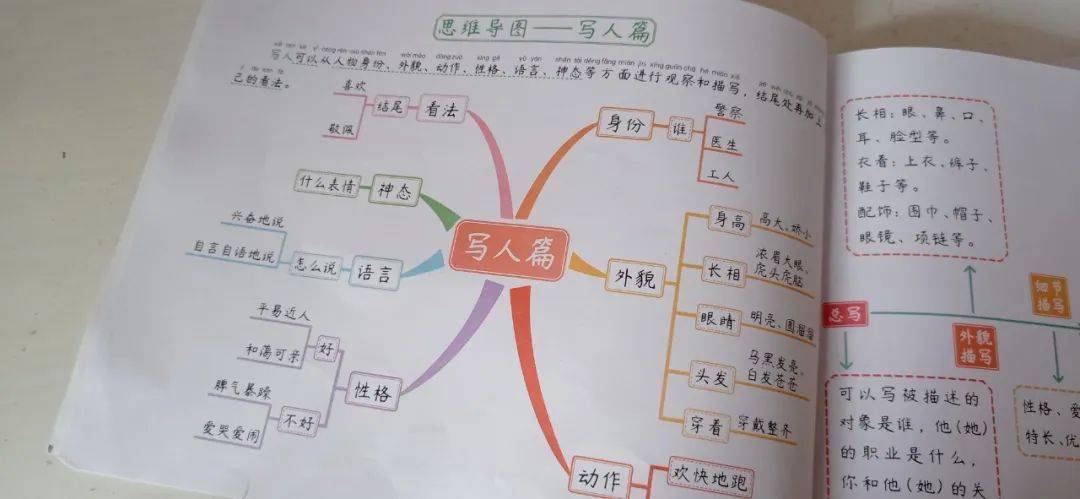 思维导图——写人篇
写人可以从人物身份、外貌、动作、性格、语言、神态等方面进行观察和描写，结尾处再加上
己的看法。
喜欢
敬佩
结尾
看法
什么表情
神态
兴奋地说
自言自语地说
怎么说
语言
平易近人
和蔼可亲
好
脾气暴躁
爱哭爱闹
不好
性格
写人篇
身份
谁
警察
医生
工人
外貌
身高
高大、娇小
长相
浓眉大眼、
虎头虎脑
眼睛
明亮、圆溜溜
头发
乌黑发亮、
白发苍苍
穿着
穿戴整齐
动作
欢快地跑
长相：眼、鼻、口、
耳、脸型等。
衣着：上衣、裤子、
鞋子等。
配饰：围巾、帽子、
眼镜、项链等。
总写
外貌
描写
细节
描写
可以写被描述的
对象是谁，他(她)
的职业是什么，
你和他(她)的关
性格、爱
特长、优